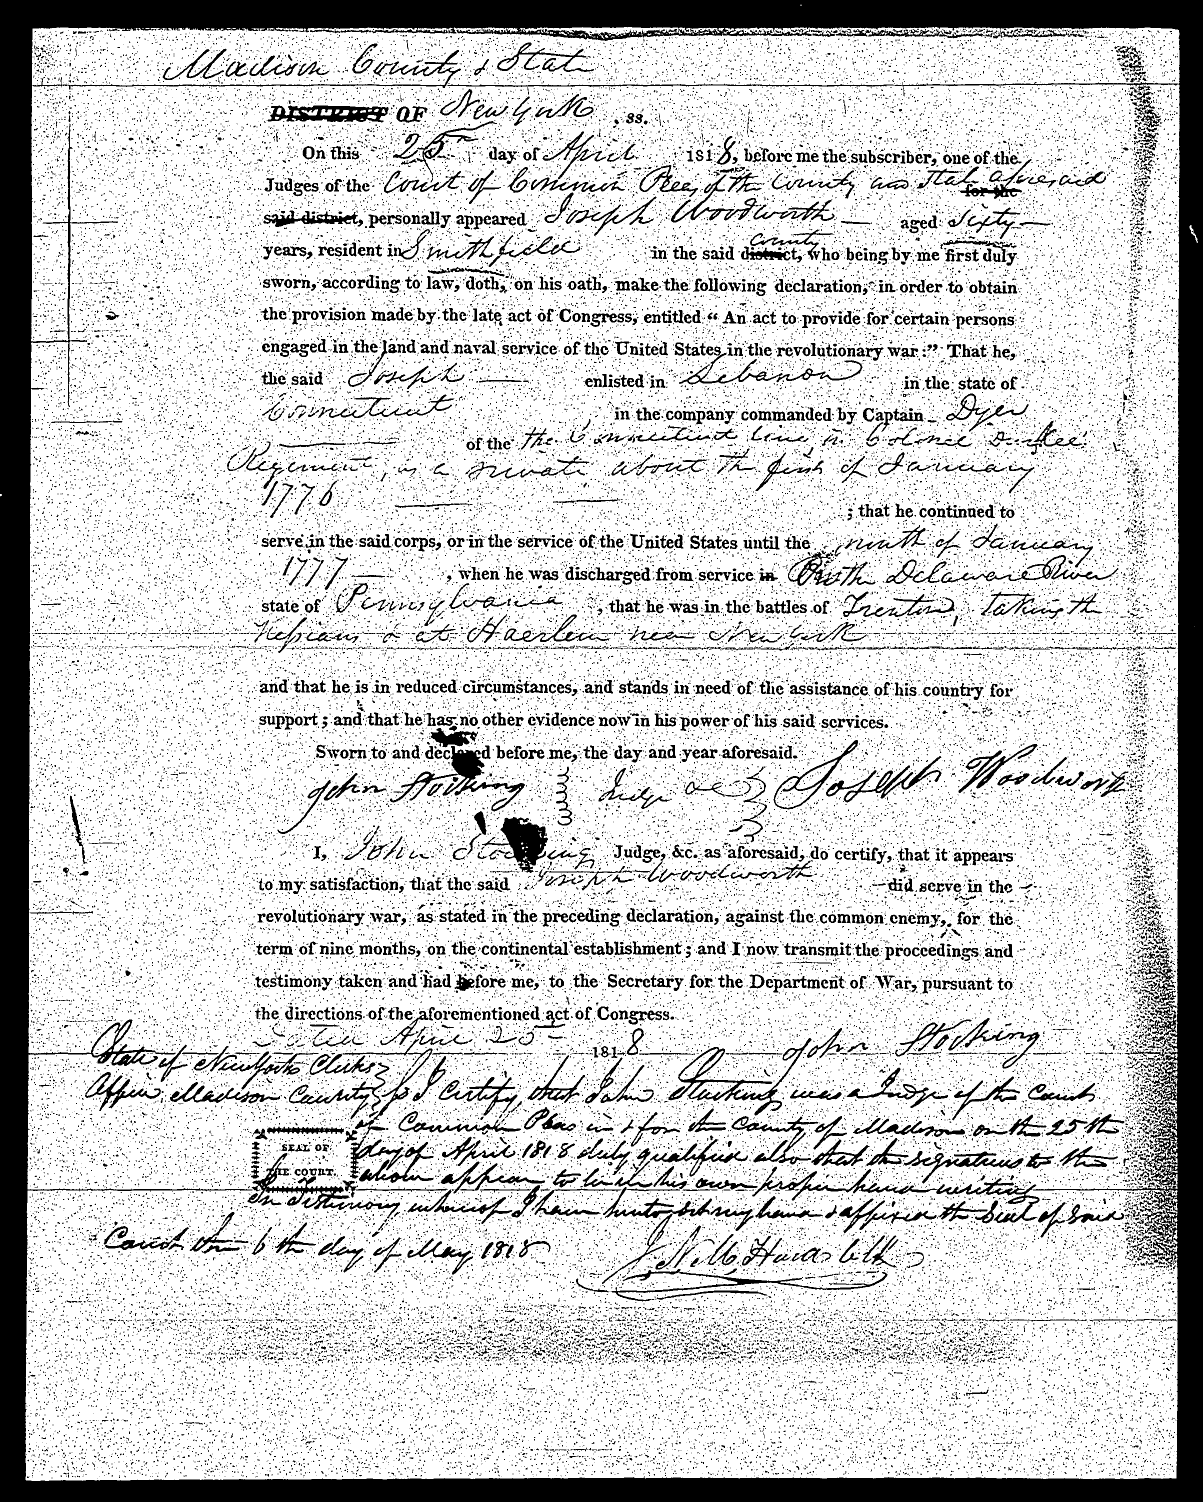 Madison County & State
DISTRICT OF New York , ss.
On this 25th day of April 1818, before me the subscriber, one of the
Judges of the Court of Common Pleas of the County and State aforesaid for the
said district, personally appeared Joseph Woodworth — aged Sixty —
county
years, resident in Smithfield in the said district, who being by me first duly
sworn, according to law, doth, on his oath, make the following declaration, in order to obtain
the provision made by the late act of Congress, entitled “ An act to provide for certain persons
engaged in the land and naval service of the United States in the revolutionary war :” That he,
the said Joseph — enlisted in Lebanon in the state of
Connecticut in the company commanded by Captain Dyer
— of the the Connecticut line in Colonel Durkee
Regiment, as a private about the first of January
1776 — — ; that he continued to
serve in the said corps, or in the service of the United States until the month of January
1777 — , when he was discharged from service in On the Delaware River
state of Pennsylvania , that he was in the battles of Trenton, taking the
Hessians & at Haerlem near New York
and that he is in reduced circumstances, and stands in need of the assistance of his country for
support ; and that he has no other evidence now in his power of his said services.
Sworn to and declared before me, the day and year aforesaid.
John Stocking Judge &c Joseph Woodworth
I, John Stocking Judge, &c. as aforesaid, do certify, that it appears
to my satisfaction, that the said Joseph Woodworth did serve in the
revolutionary war, as stated in the preceding declaration, against the common enemy, for the
term of nine months, on the continental establishment ; and I now transmit the proceedings and
testimony taken and had before me, to the Secretary for the Department of War, pursuant to
the directions of the aforementioned act of Congress.
Dated April 25 1818 John Stocking
State of New York Clerks
Office Madison County ss I Certify that John Stocking was a Judge of the Court
of Common Pleas in & for the County of Madison on the 25th
day of April 1818 duly qualified also that the signatures to the
SEAL OF
THE COURT.
above appear to be in his own proper hand writing
In Testimony whereof I have hereto set my hand & affixed the Seal of said
Court this 6th day of May 1818